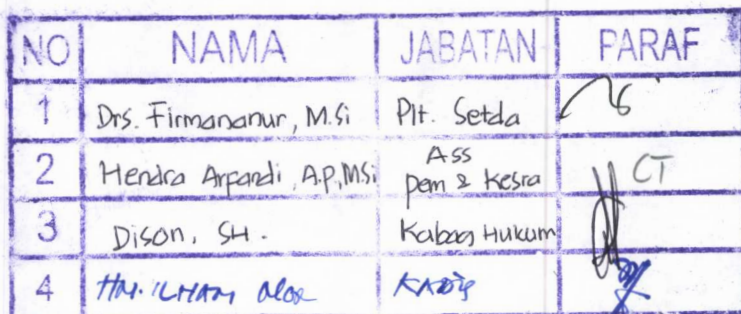 NO NAMA JABATAN PARAF
1 Drs. Firmananur, M.Si Plt. Setda
2 Hendra Arpandi, A.P, MSi Ass Pem & Kesra CT
3 Dison, SH. Kabag Hukum
4 HM. ILHAM KADIS